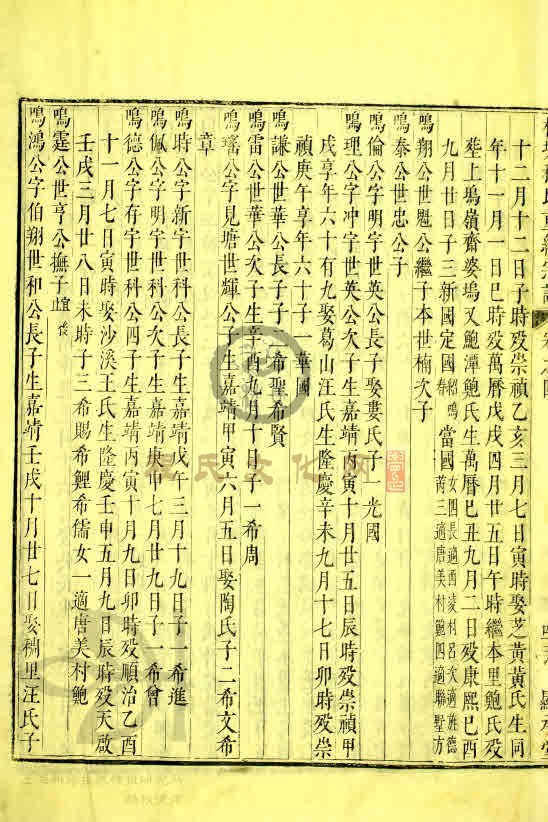 十二月十二日子時殁崇禎乙亥三月七日寅時娶芝黃黃氏生同
年十一月一日巳時殁萬曆戊戌四月廿五日午時繼本里鮑氏殁
塟上塢嶺齋婆塢又鮑潭鮑氏生萬曆巳丑九月二日殁康熙巳酉
九月廿日子三新國定國紹鳴春當國女四長適西淩村呂次適旌德蒋三適唐美村鮑四適聯墅方
鳴翔公世魁公繼子本世楠次子
鳴泰公世忠公子
鳴倫公字明宇世英公長子娶婁氏子光國
鳴理公字冲宇世英公次子生嘉靖丙寅十月廿五日辰時殁崇禎甲
戌享年六十有九娶葛山汪氏生隆慶辛未九月十七日卯時殁崇
禎庚午享年六十子華國
鳴謙公世華公長子子一希聖希賢
鳴雷公世華公次子生辛酉九月十日子一希周
鳴瑤公字見塘世輝公子生嘉靖甲寅六月五日娶陶氏子二希文希
章
鳴時公字新宇世科公長子生嘉靖戊午三月十九日子一希進
鳴佩公字明宇世科公次子生嘉靖庚申七月廿九日子一希會
鳴德公字存宇世科公四子生嘉靖丙寅十月九日卯時殁順治乙酉
十一月七日寅時娶沙溪王氏生隆慶壬申五月九日辰時殁天啟
壬戌三月廿八日未時子三希賜希鯉希儒女一適唐美村鮑
鳴霆公世亨公撫子
鳴鴻公字伯翔世和公長子生嘉靖壬戌十月廿七日娶稠里汪氏子